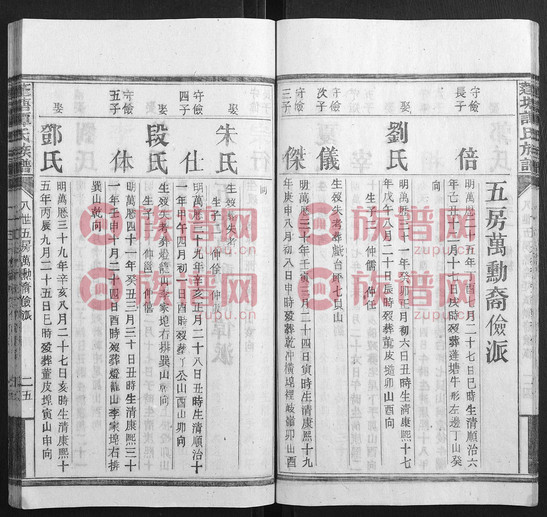 蓮塘譚氏族譜
五房萬勳裔儉派
守儉長子
倍
明萬曆二十五年丁酉二月二十七日巳時生清順治六
年己丑二月十七日戌時歿葬蓬塘牛形左邊丁山癸
向
娶
劉氏
明萬曆三十一年癸卯正月初六日丑時生清康熙十七
年戊午八月二十日辰時歿葬董皮塘卯山酉向
生子二 仲儒 仲任
守儉次子
儀
生歿失考葬戲台嶺七貝山
守儉三子
傑
明萬曆 月二十四日寅時生清康熙十九
年庚申八月初八日申時歿葬乾沖橫埠裡歧嶺卯山酉
向
娶
朱氏
生歿失考
生子二 仲俊 仲任
守儉四子
仕
明萬曆三十九年辛亥正月二十八日丑時生清順治十
一年甲午四月初一日酉時歿葬丁公山酉山卯向
娶
段氏
生歿失考葬燈龍山李家埠右排巽山乾向
生子二 仲富
守儉五子
体
明萬曆四十一年癸丑三月三十日丑時生清康熙三十
一年壬申十月二十四日酉時歿葬燈龍山李家埠右排
巽山乾向
娶
鄧氏
明萬曆三十九年辛亥八月二十七日亥時生清康熙十
五年丙辰九月二十五日巳時歿葬董皮埠寅山申向
蓮塘譚氏族譜
八世五房萬勳裔儉派
二五
族譜网
zupu.cn